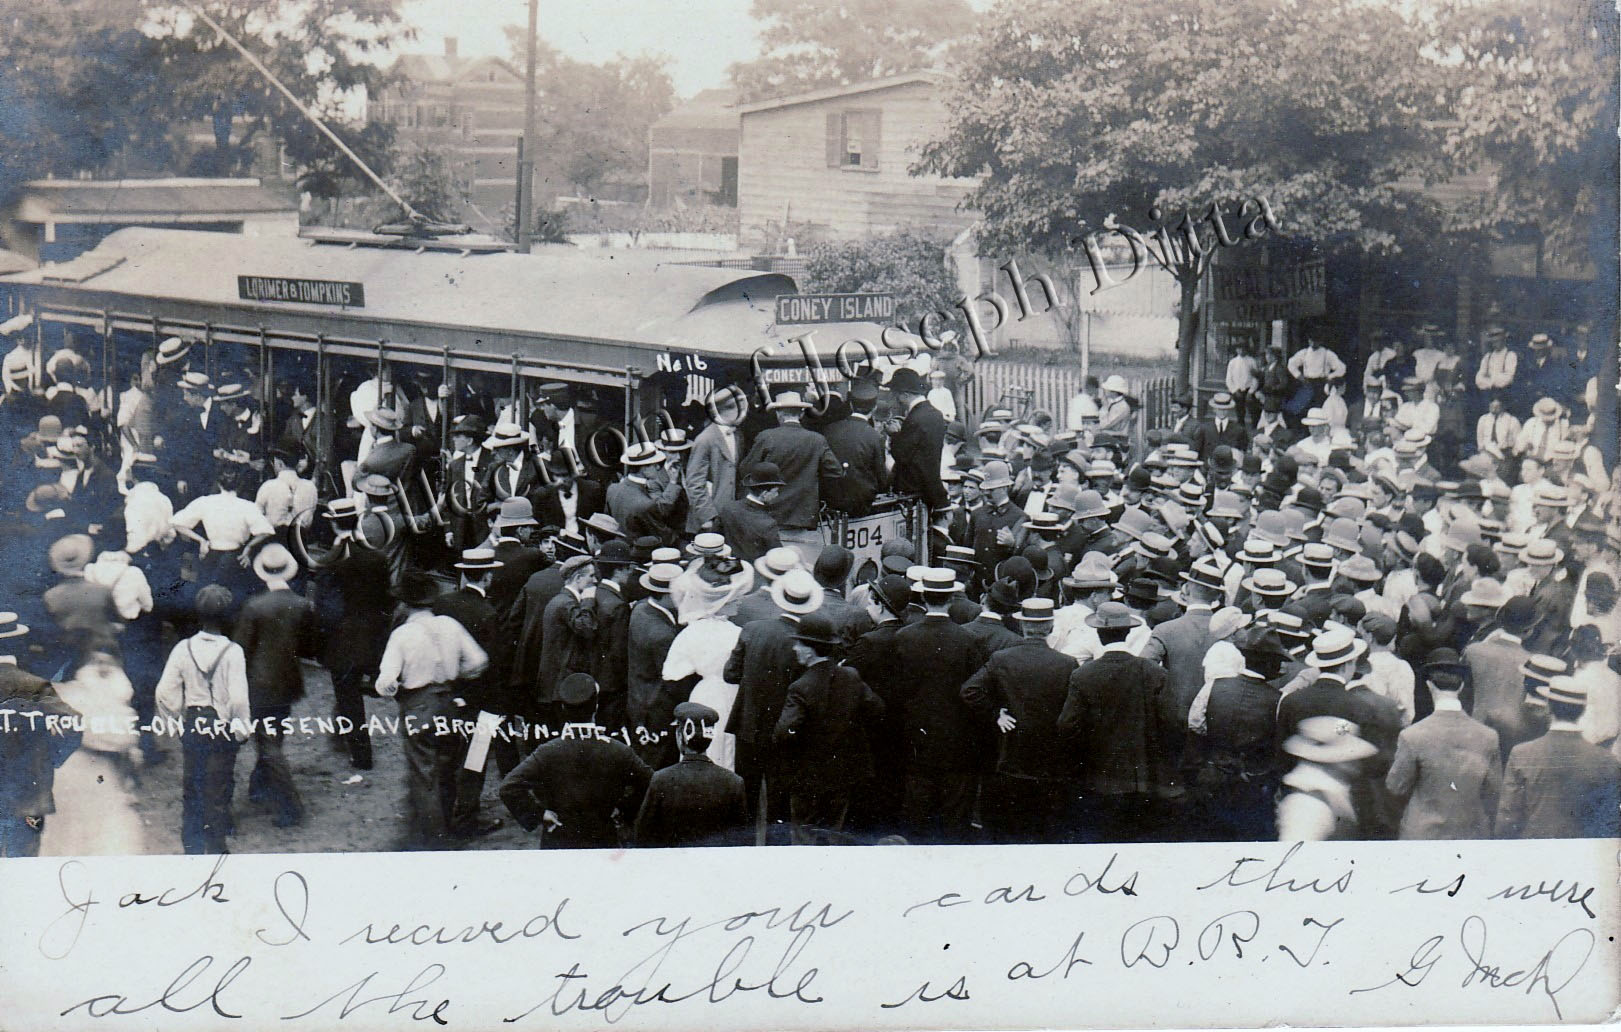 LORIMER & TOMPKINS
CONEY ISLAND
No 16
CONEY ISLAND
REAL ESTATE
OFFICE
804
Collection of Joseph Ditta
T. TROUBLE-ON-GRAVESEND-AVE-BROOKLYN-AUG-12-06
Jack I recived your cards this is were
all the trouble is at B.R.T.